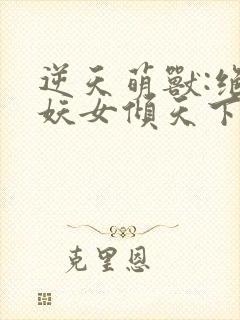 逆天萌獸:絕
妖女傾天下
克里恩